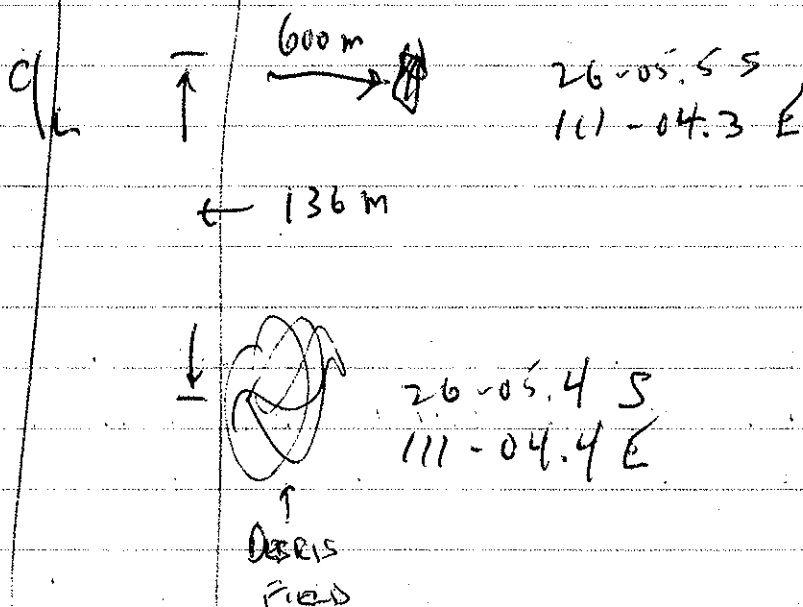 600 m
C/L
26-05.5 S
111-04.3 E
136 m
26-05.4 S
111-04.4 E
DEBRIS
FIELD